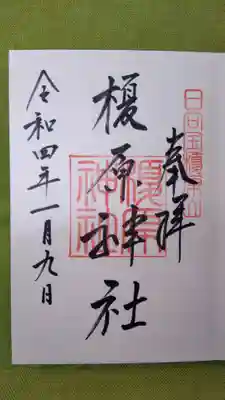 奉拝
日向金倶羅山
榎原神社
榎原神社
令和四年一月九日